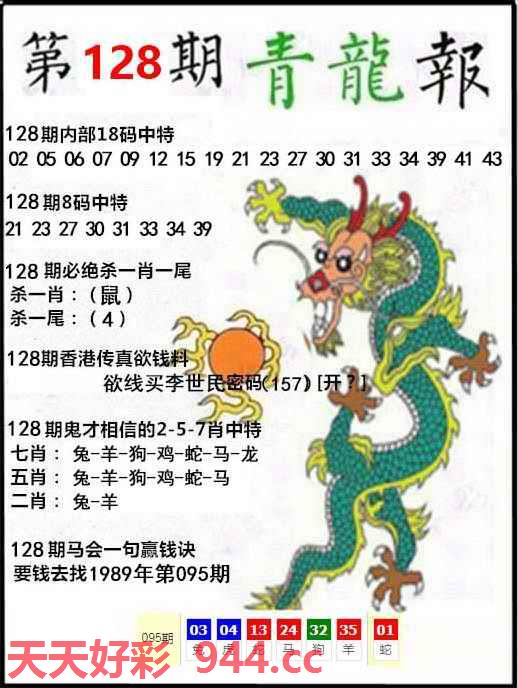 第128期青龍報
128期内部18码中特
02 05 06 07 09 12 15 19 21 23 27 30 31 33 34 39 41 43
128期8码中特
21 23 27 30 31 33 34 39
128期必绝杀一肖一尾
杀一肖：（鼠）
杀一尾：（4）
128期香港传真欲钱料
欲线买李世民密码(157)[开?]
128期鬼才相信的2-5-7肖中特
七肖：兔-羊-狗-鸡-蛇-马-龙
五肖：兔-羊-狗-鸡-蛇-马
二肖：兔-羊
128期马会一句赢钱诀
要钱去找1989年第095期
095期 03 04 13 24 32 35 01
兔 虎 蛇 马 狗 羊 蛇
天天好彩 944.cc